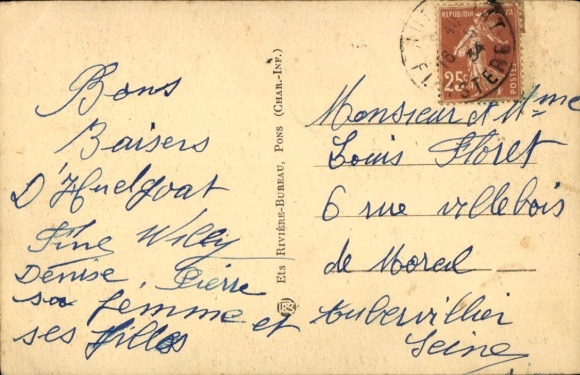 Bons
Baisers
D'Huelgoat
Fine Willy
Denise, Pierre
sa femme et
ses filles
Ets RIVIÈRE-BUREAU, PONS (CHAR.-INF.)
REPUBLIQUE
25c
POSTES
FINISTERE
Monsieur et Mme
Louis Floret
6 rue villebois
de Moreil
Aubervillier
Seine